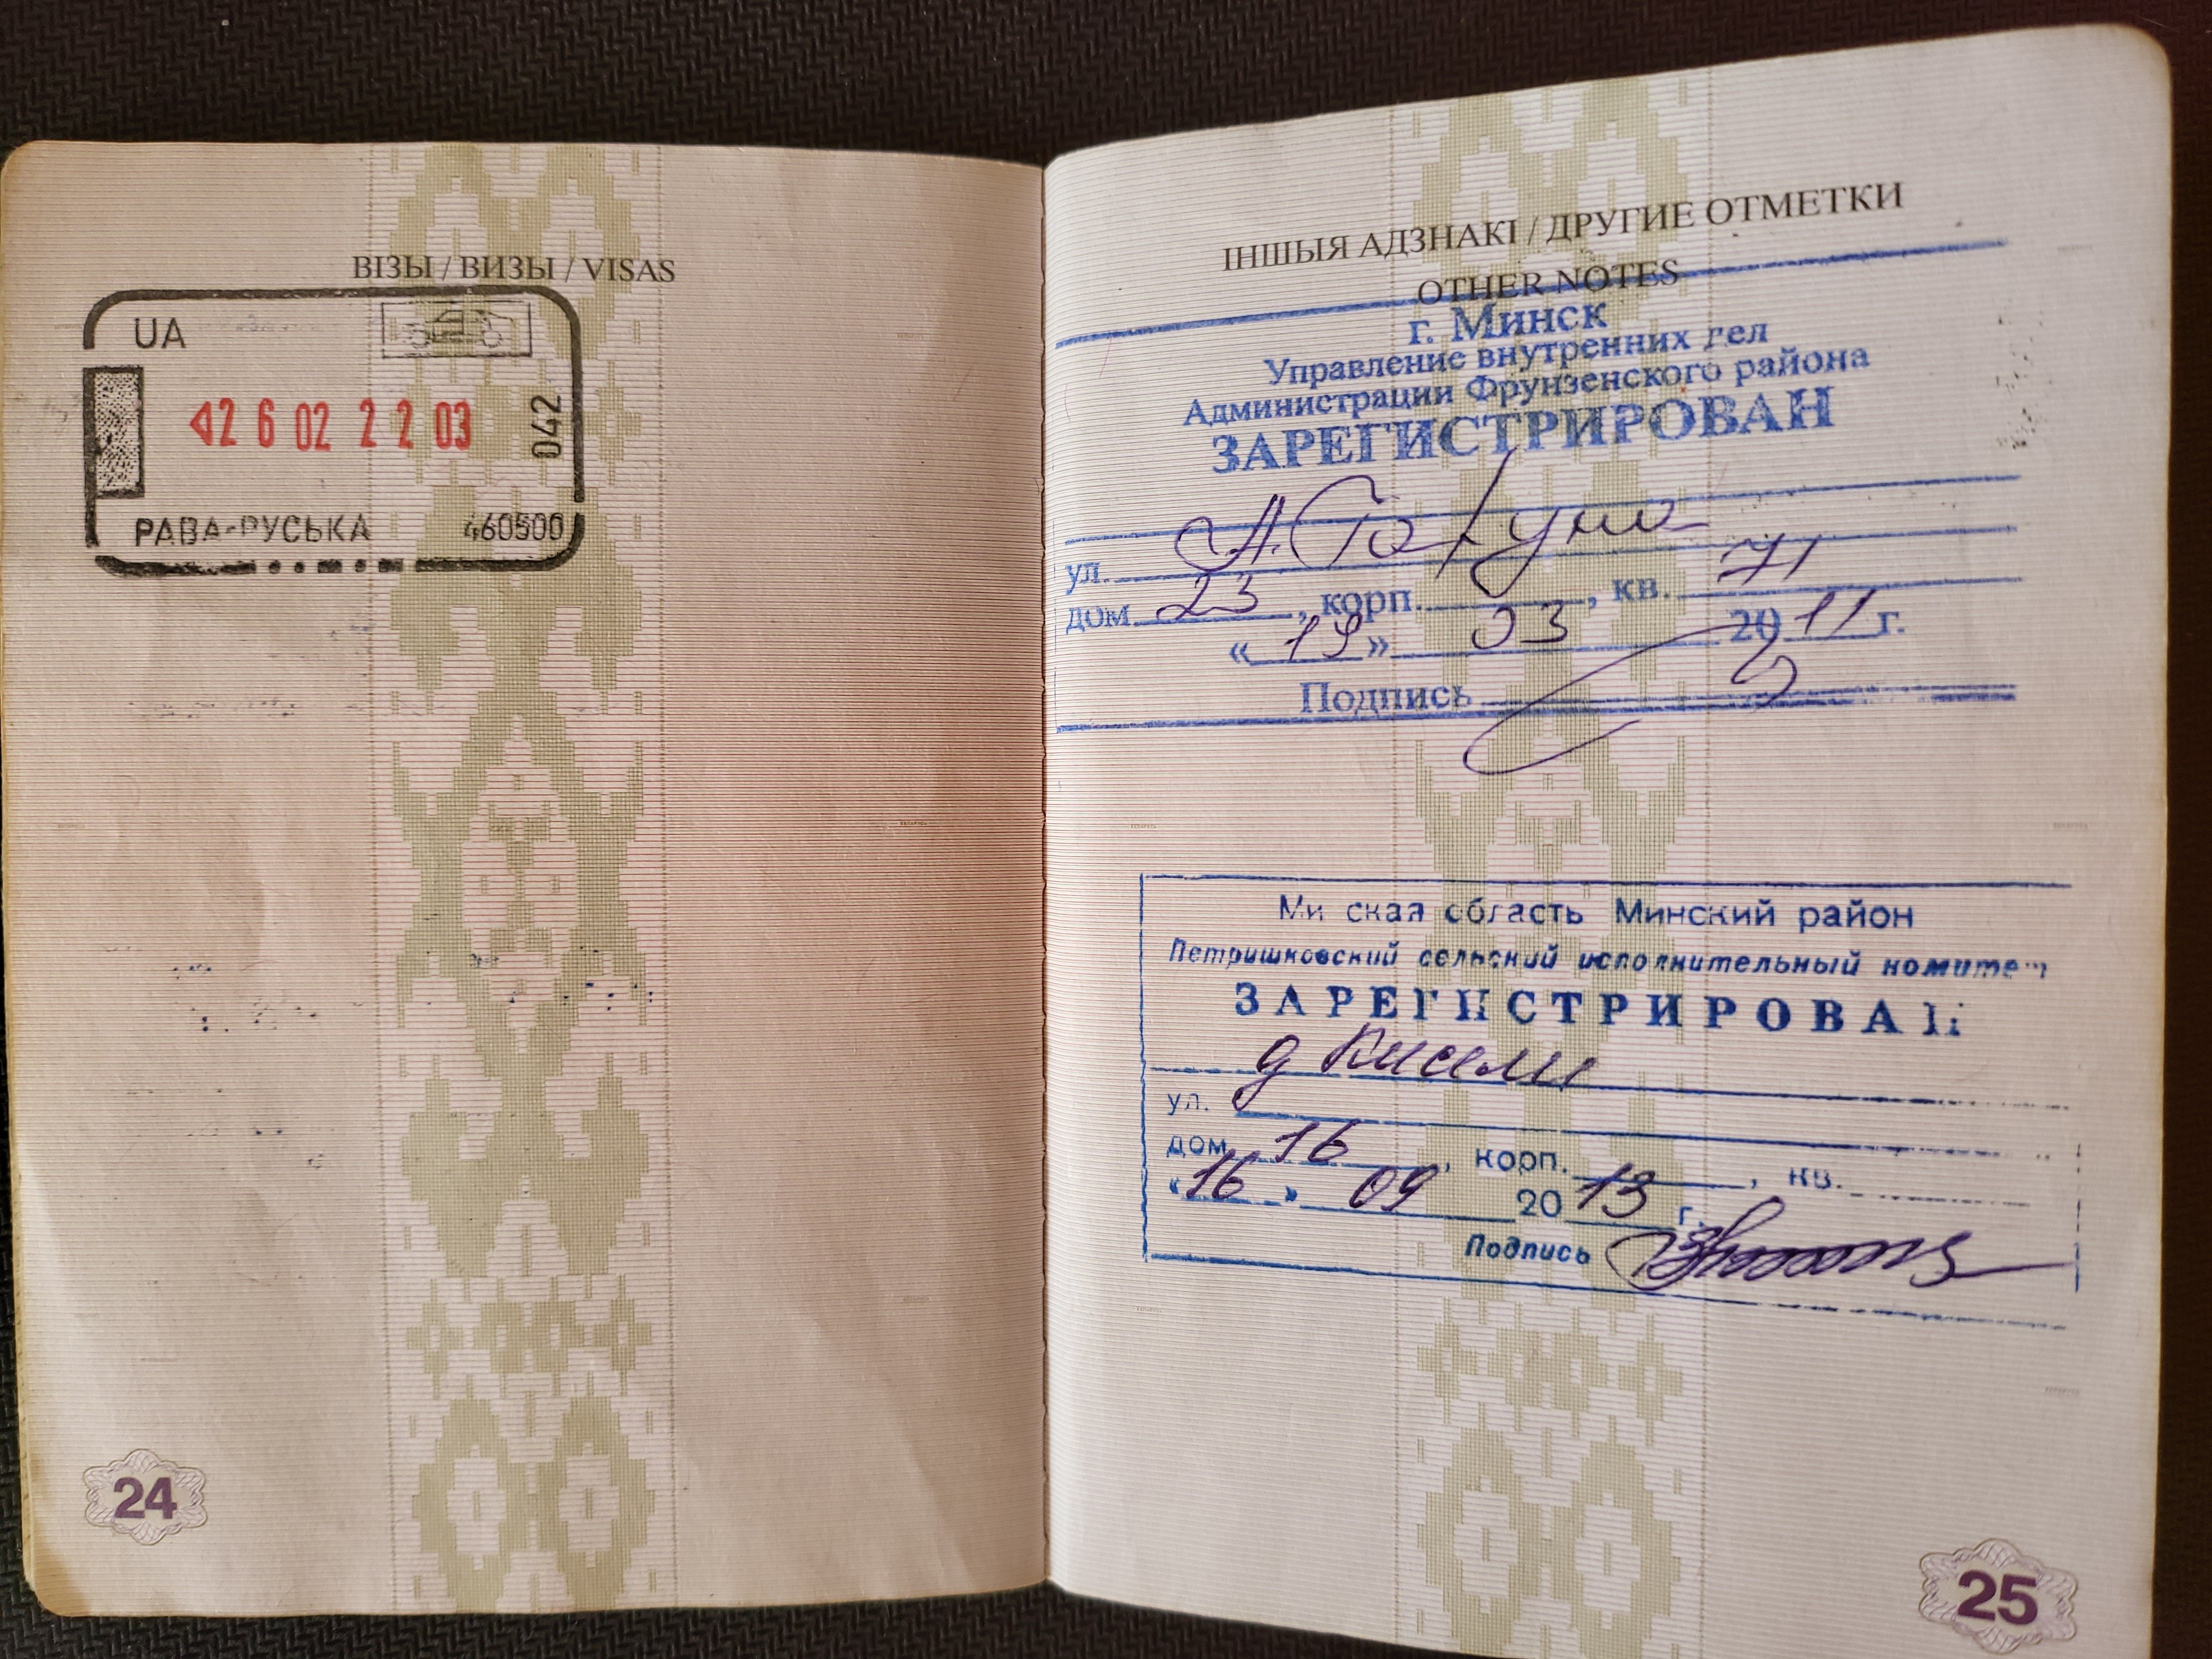 ВІЗЫ / ВИЗЫ / VISAS
UA
26 02 22 03
042
РАВА-РУСЬКА 460500
24
ІНШЫЯ АДЗНАКІ / ДРУГИЕ ОТМЕТКИ
OTHER NOTES
г. Минск
Управление внутренних дел
Администрации Фрунзенского района
ЗАРЕГИСТРИРОВАН
ул.
дом 23, корп. , кв. 71
« 19 » 03 2011 г.
Подпись
Минская область Минский район
Петришковский сельский исполнительный комитет
ЗАРЕГИСТРИРОВАН
д Кисели
ул.
дом 16, корп. , кв.
« 16 » 09 2013 г.
Подпись
25